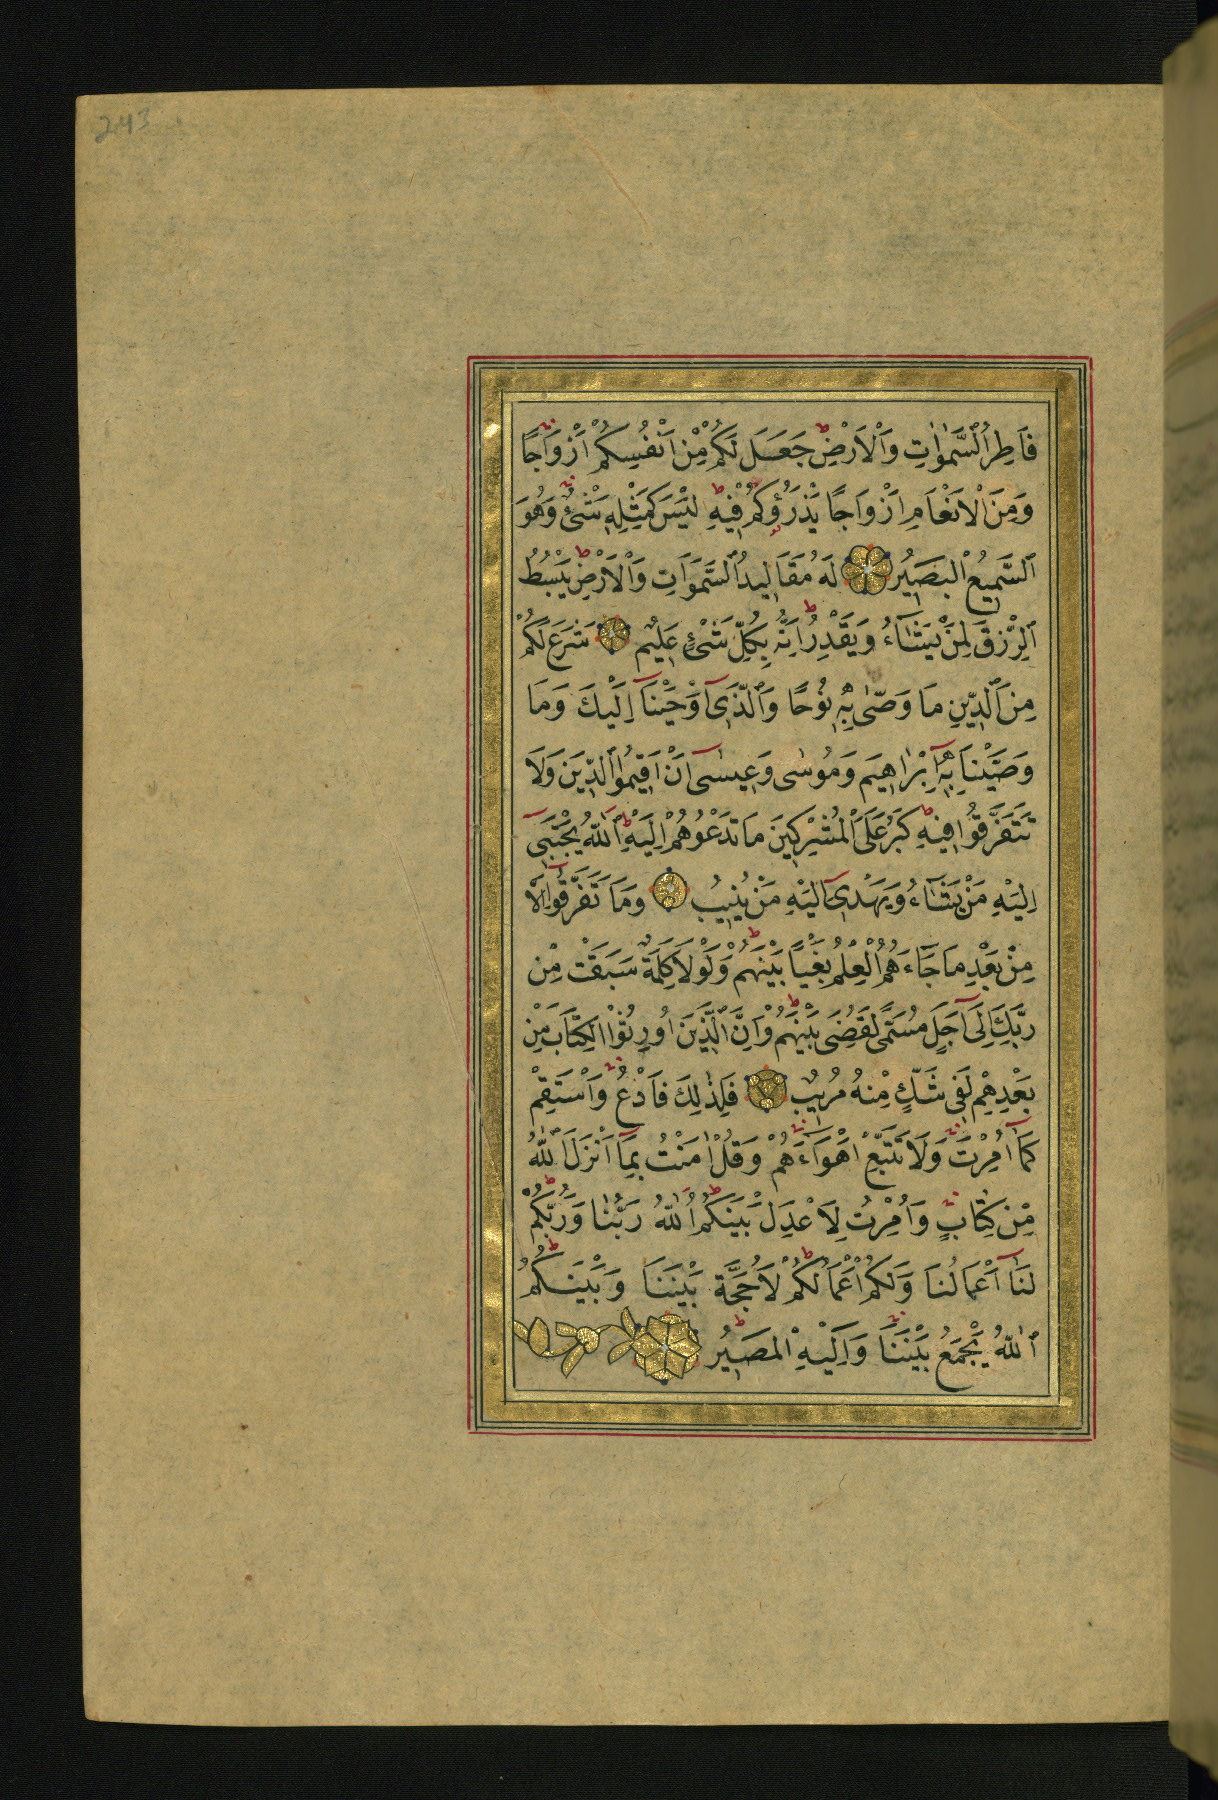 243
فَاطِرُ ٱلسَّمٰوٰاتِ وَالْاَرْضِ ط جَعَلَ لَكُمْ مِنْ اَنْفُسِكُمْ اَزْوَاجًا
وَمِنَ الْاَنْعَامِ اَزْوَاجًا يَذْرَؤُكُمْ فِيهِ ط لَيْسَ كَمِثْلِهِ شَىْءٌ وَهُوَ
ٱلسَّمِيعُ الْبَصِيرُ لَهُ مَقَالِيدُ ٱلسَّمَوَاتِ وَالْاَرْضِ ط يَبْسُطُ
ٱلرِّزْقَ لِمَنْ يَشَآءُ وَيَقْدِرُ ط اِنَّهُ بِكُلِّ شَىْءٍ عَلِيمٌ شَرَعَ لَكُمْ
مِنَ ٱلدِّينِ مَا وَصّٰى بِهِ نُوحًا وَٱلَّذِىٓ اَوْحَيْنَآ اِلَيْكَ وَمَا
وَصَّيْنَا بِهِٓ اِبْرٰاهِيمَ وَمُوسٰى وَعِيسٰىٓ اَنْ اَقِيمُوا ٱلدِّينَ وَلَا
تَتَفَرَّقُوا فِيهِ ط كَبُرَ عَلَى الْمُشْرِكِينَ مَا تَدْعُوهُمْ اِلَيْهِ ط ٱللّٰهُ يَجْتَبِىٓ
اِلَيْهِ مَنْ يَشَآءُ وَيَهْدِىٓ اِلَيْهِ مَنْ يُنِيبُ وَمَا تَفَرَّقُوٓا اِلَّا
مِنْ بَعْدِ مَا جَآءَهُمُ الْعِلْمُ بَغْيًا بَيْنَهُمْ ط وَلَوْلَا كَلِمَةٌ سَبَقَتْ مِنْ
رَبِّكَ اِلَىٓ اَجَلٍ مُسَمًّى لَقُضِىَ بَيْنَهُمْ ط وَاِنَّ ٱلَّذِينَ اُورِثُوا الْكِتَابَ مِنْ
بَعْدِهِمْ لَفِى شَكٍّ مِنْهُ مُرِيبٌ فَلِذٰلِكَ فَادْعُ وَاسْتَقِمْ
كَمَآ اُمِرْتَ وَلَا تَتَّبِعْ اَهْوَآءَهُمْ وَقُلْ اٰمَنْتُ بِمَآ اَنْزَلَ ٱللّٰهُ
مِنْ كِتَابٍ وَاُمِرْتُ لِاَعْدِلَ بَيْنَكُمْ ط اَللّٰهُ رَبُّنَا وَرَبُّكُمْ ط
لَنَآ اَعْمَالُنَا وَلَكُمْ اَعْمَالُكُمْ ط لَا حُجَّةَ بَيْنَنَا وَبَيْنَكُمْ ط
ٱللّٰهُ يَجْمَعُ بَيْنَنَا وَاِلَيْهِ الْمَصِيرُ ط